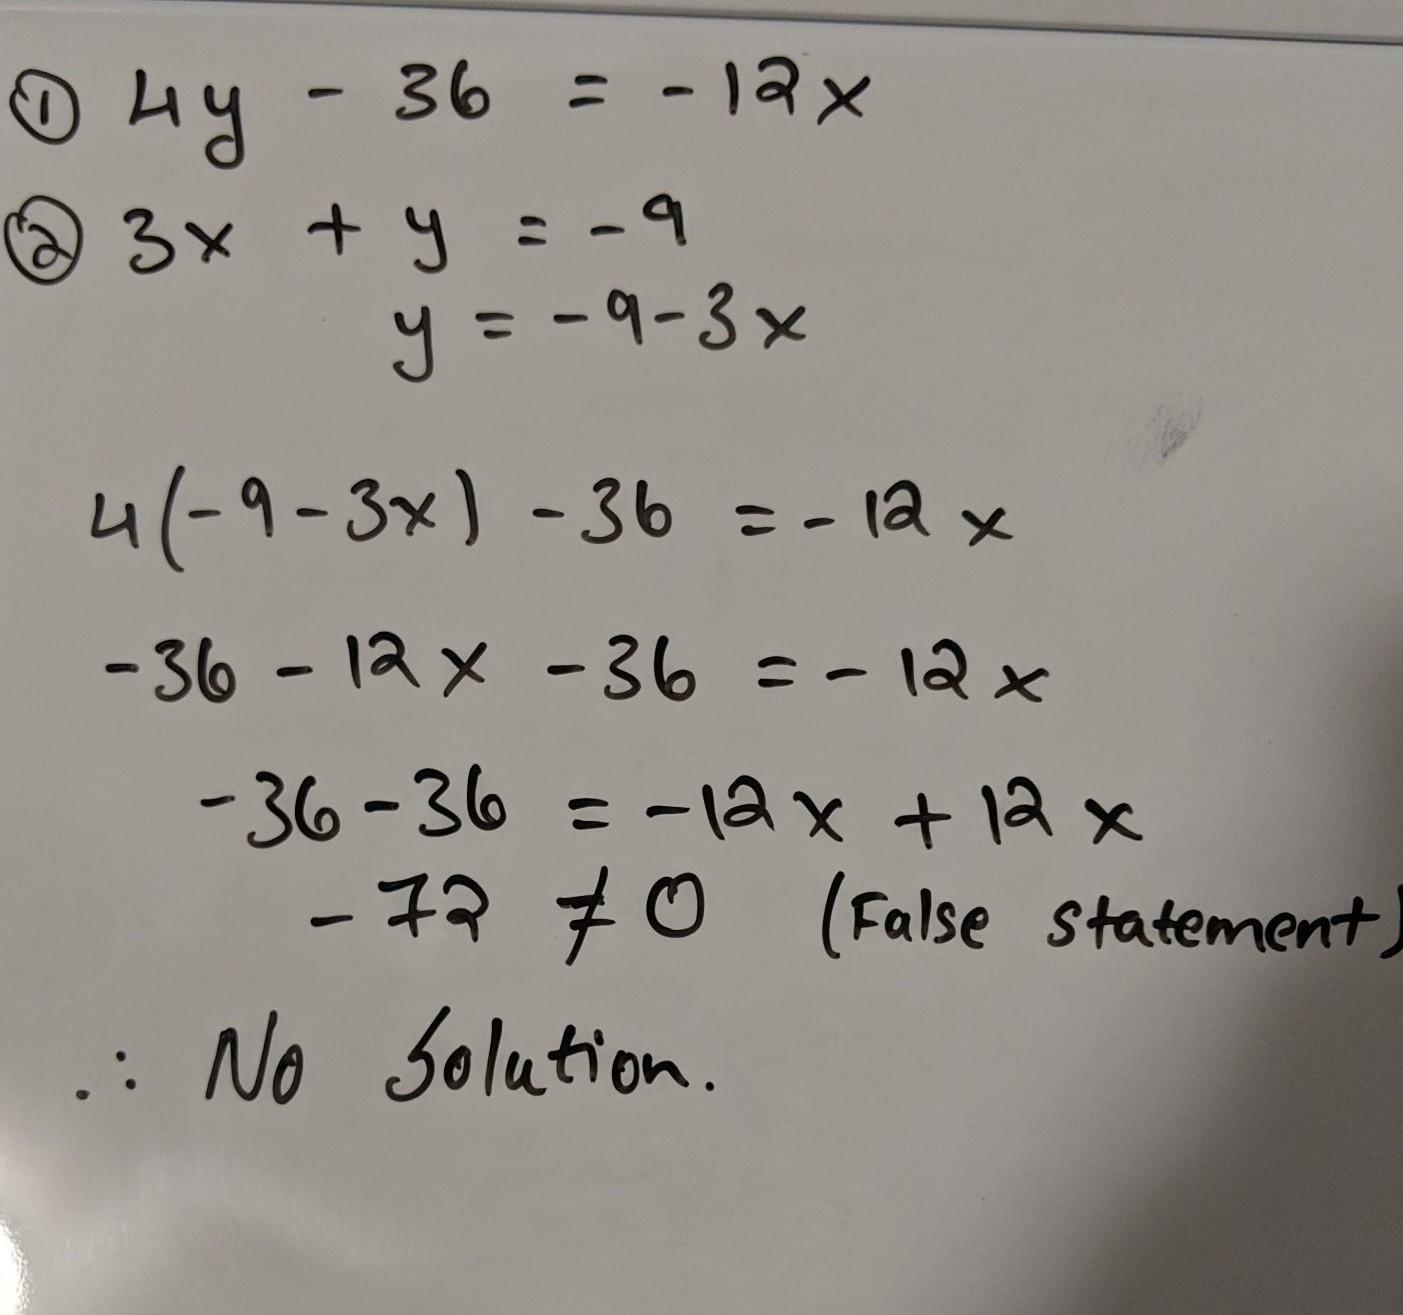 ① 4y - 36 = -12x
② 3x + y = -9
y = -9-3x
4(-9-3x) -36 = -12x
-36 - 12x -36 = -12x
-36-36 = -12x + 12x
-72 ≠ 0 (False statement)
∴ No Solution.